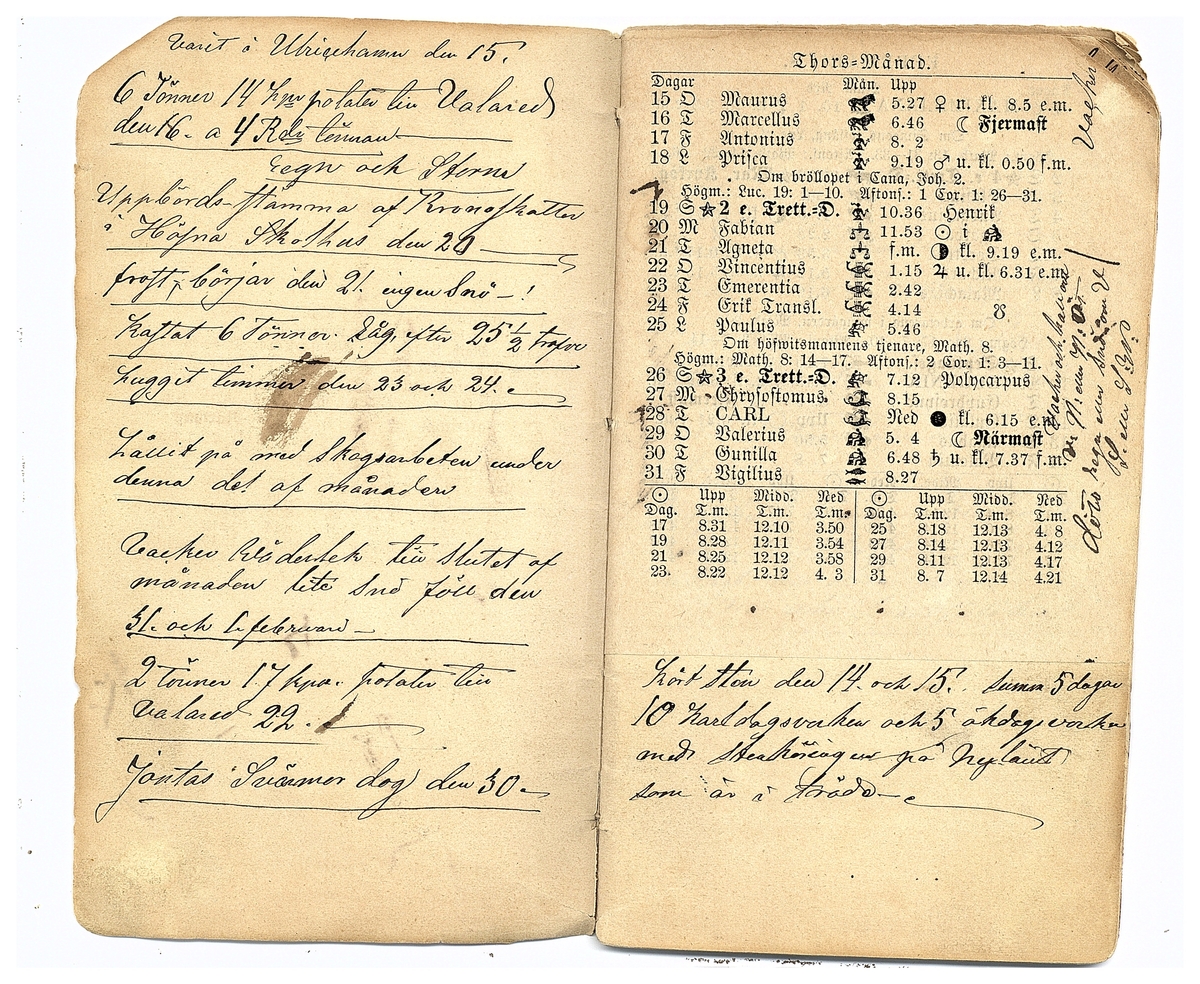 Varit i Ulricehamn den 15.
6 Tönner 14 kpr potater till Valared
den 16. a 4 Rdr tönnan
regn och Storm
Uppbörds-stämma af Kronoskatter
i Högna Skolhus den 20
frost, börjar den 21. ingen Snö - !
kastat 6 Tönner. Såg. efter 25 1/2
hugget timmer den 23 och 24.
hållit på med Skogsarbeten under
denna del af månaden
Vacker Väderlek till slutet af
månaden lite Snö föll den
31. och 1. februari
2 tönner 17 kpr. potater till
Valared 22.
Jontas Svärmor dog den 30.
Thors-Månad.
Dagar Mån. Upp
15 O Maurus 5.27 ♀ n. kl. 8.5 e.m.
16 T Marcellus 6.46 ☾ Fjermast
17 F Antonius 8. 2
18 L Prisca 9.19 ♂ u. kl. 0.50 f.m.
Om bröllopet i Cana, Joh. 2.
Högm.: Luc. 19: 1—10. Aftons.: 1 Cor. 1: 26—31.
19 S ☆ 2 e. Trett.-D. 10.36 Henrik
20 M Fabian 11.53 ☉ i ♒
21 T Agneta f.m. ◑ kl. 9.19 e.m.
22 O Vincentius 1.15 ♃ u. kl. 6.31 e.m.
23 T Emerentia 2.42
24 F Erik Transl. 4.14 ☋
25 L Paulus 5.46
Om höfwitsmannens tjenare, Math. 8.
Högm.: Math. 8: 14—17. Aftons.: 2 Cor. 1: 3—11.
26 S ☆ 3 e. Trett.-D. 7.12 Polycarpus
27 M Chrysostomus 8.15
28 T CARL Ned ● kl. 6.15 e.m.
29 O Valerius 5. 4 ☾ Närmast
30 T Gunilla 6.48 ♄ u. kl. 7.37 f.m.
31 F Vigilius 8.27
☉ Upp Midd. Ned ☉ Upp Midd. Ned
Dag. T.m. T.m. T.m. Dag. T.m. T.m. T.m.
17 8.31 12.10 3.50 25 8.18 12.13 4. 8
19 8.28 12.11 3.54 27 8.14 12.13 4.12
21 8.25 12.12 3.58 29 8.11 12.13 4.17
23 8.22 12.12 4. 3 31 8. 7 12.14 4.21
Vacker
Vacker och
regn eller Snö om
S. eller S.V.
kört Sten den 14. och 15. summa 5 dagar
10 karldagsverken och 5 ökdagsverken
med Stenkörningen på Nylandet
som är i träde